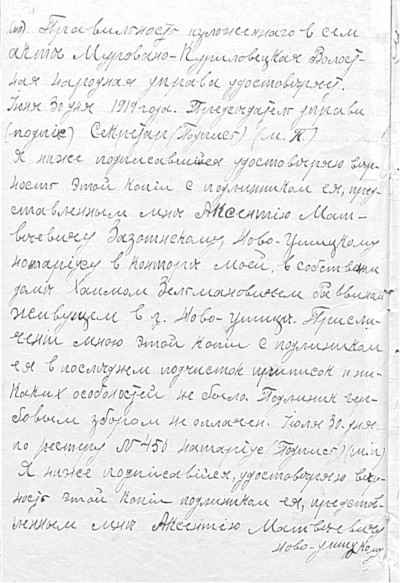 Правильность изложеннаго в сем
актѣ Мурговано-Куриловецкая Волост-
ная народная управа удостовѣряет.
Iюня 30 дня 1919 года. Председатель управы
(подпис) Секретарь (Подпис) (М. П.)
Я ниже подписавшiйся удостовѣряю вѣр-
ность этой копiи с подлинником ея, пред-
ставленным мнѣ Аксентiю Мат-
вѣевичу Зазотнскому Ново-Ушицкому
нотарiусу в конторѣ моей, в собственн
домѣ Хаимом Зельмановичем
живущем в г. Ново-Ушицѣ. При сли-
ченiи мною этой копiи с подлинником
ея в последнем подчисток приписок и ни-
каких особостей не было. Подлинник гер-
бовым збором не оплачен. Iюля 30 дня.
по реестру № 450 натарiус (Подпис) (м.п.)
Я ниже подписавшiйся, удостовѣряю вѣр-
ность этой копiи подлинникам ея, представ-
ленным мнѣ Аксентiю Матвѣевичу
Ново-Ушицкому